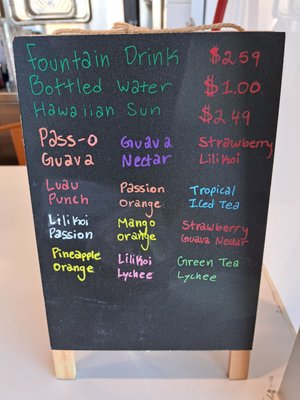 Fountain Drink $2.59
Bottled water $1.00
Hawaiian Sun $2.49
Pass-o Guava
Guava Nectar
Strawberry Lilikoi
Luau Punch
Passion Orange
Tropical Iced Tea
Lilikoi Passion
Mango Orange
Strawberry Guava Nectar
Pineapple Orange
Lilikoi Lychee
Green Tea Lychee